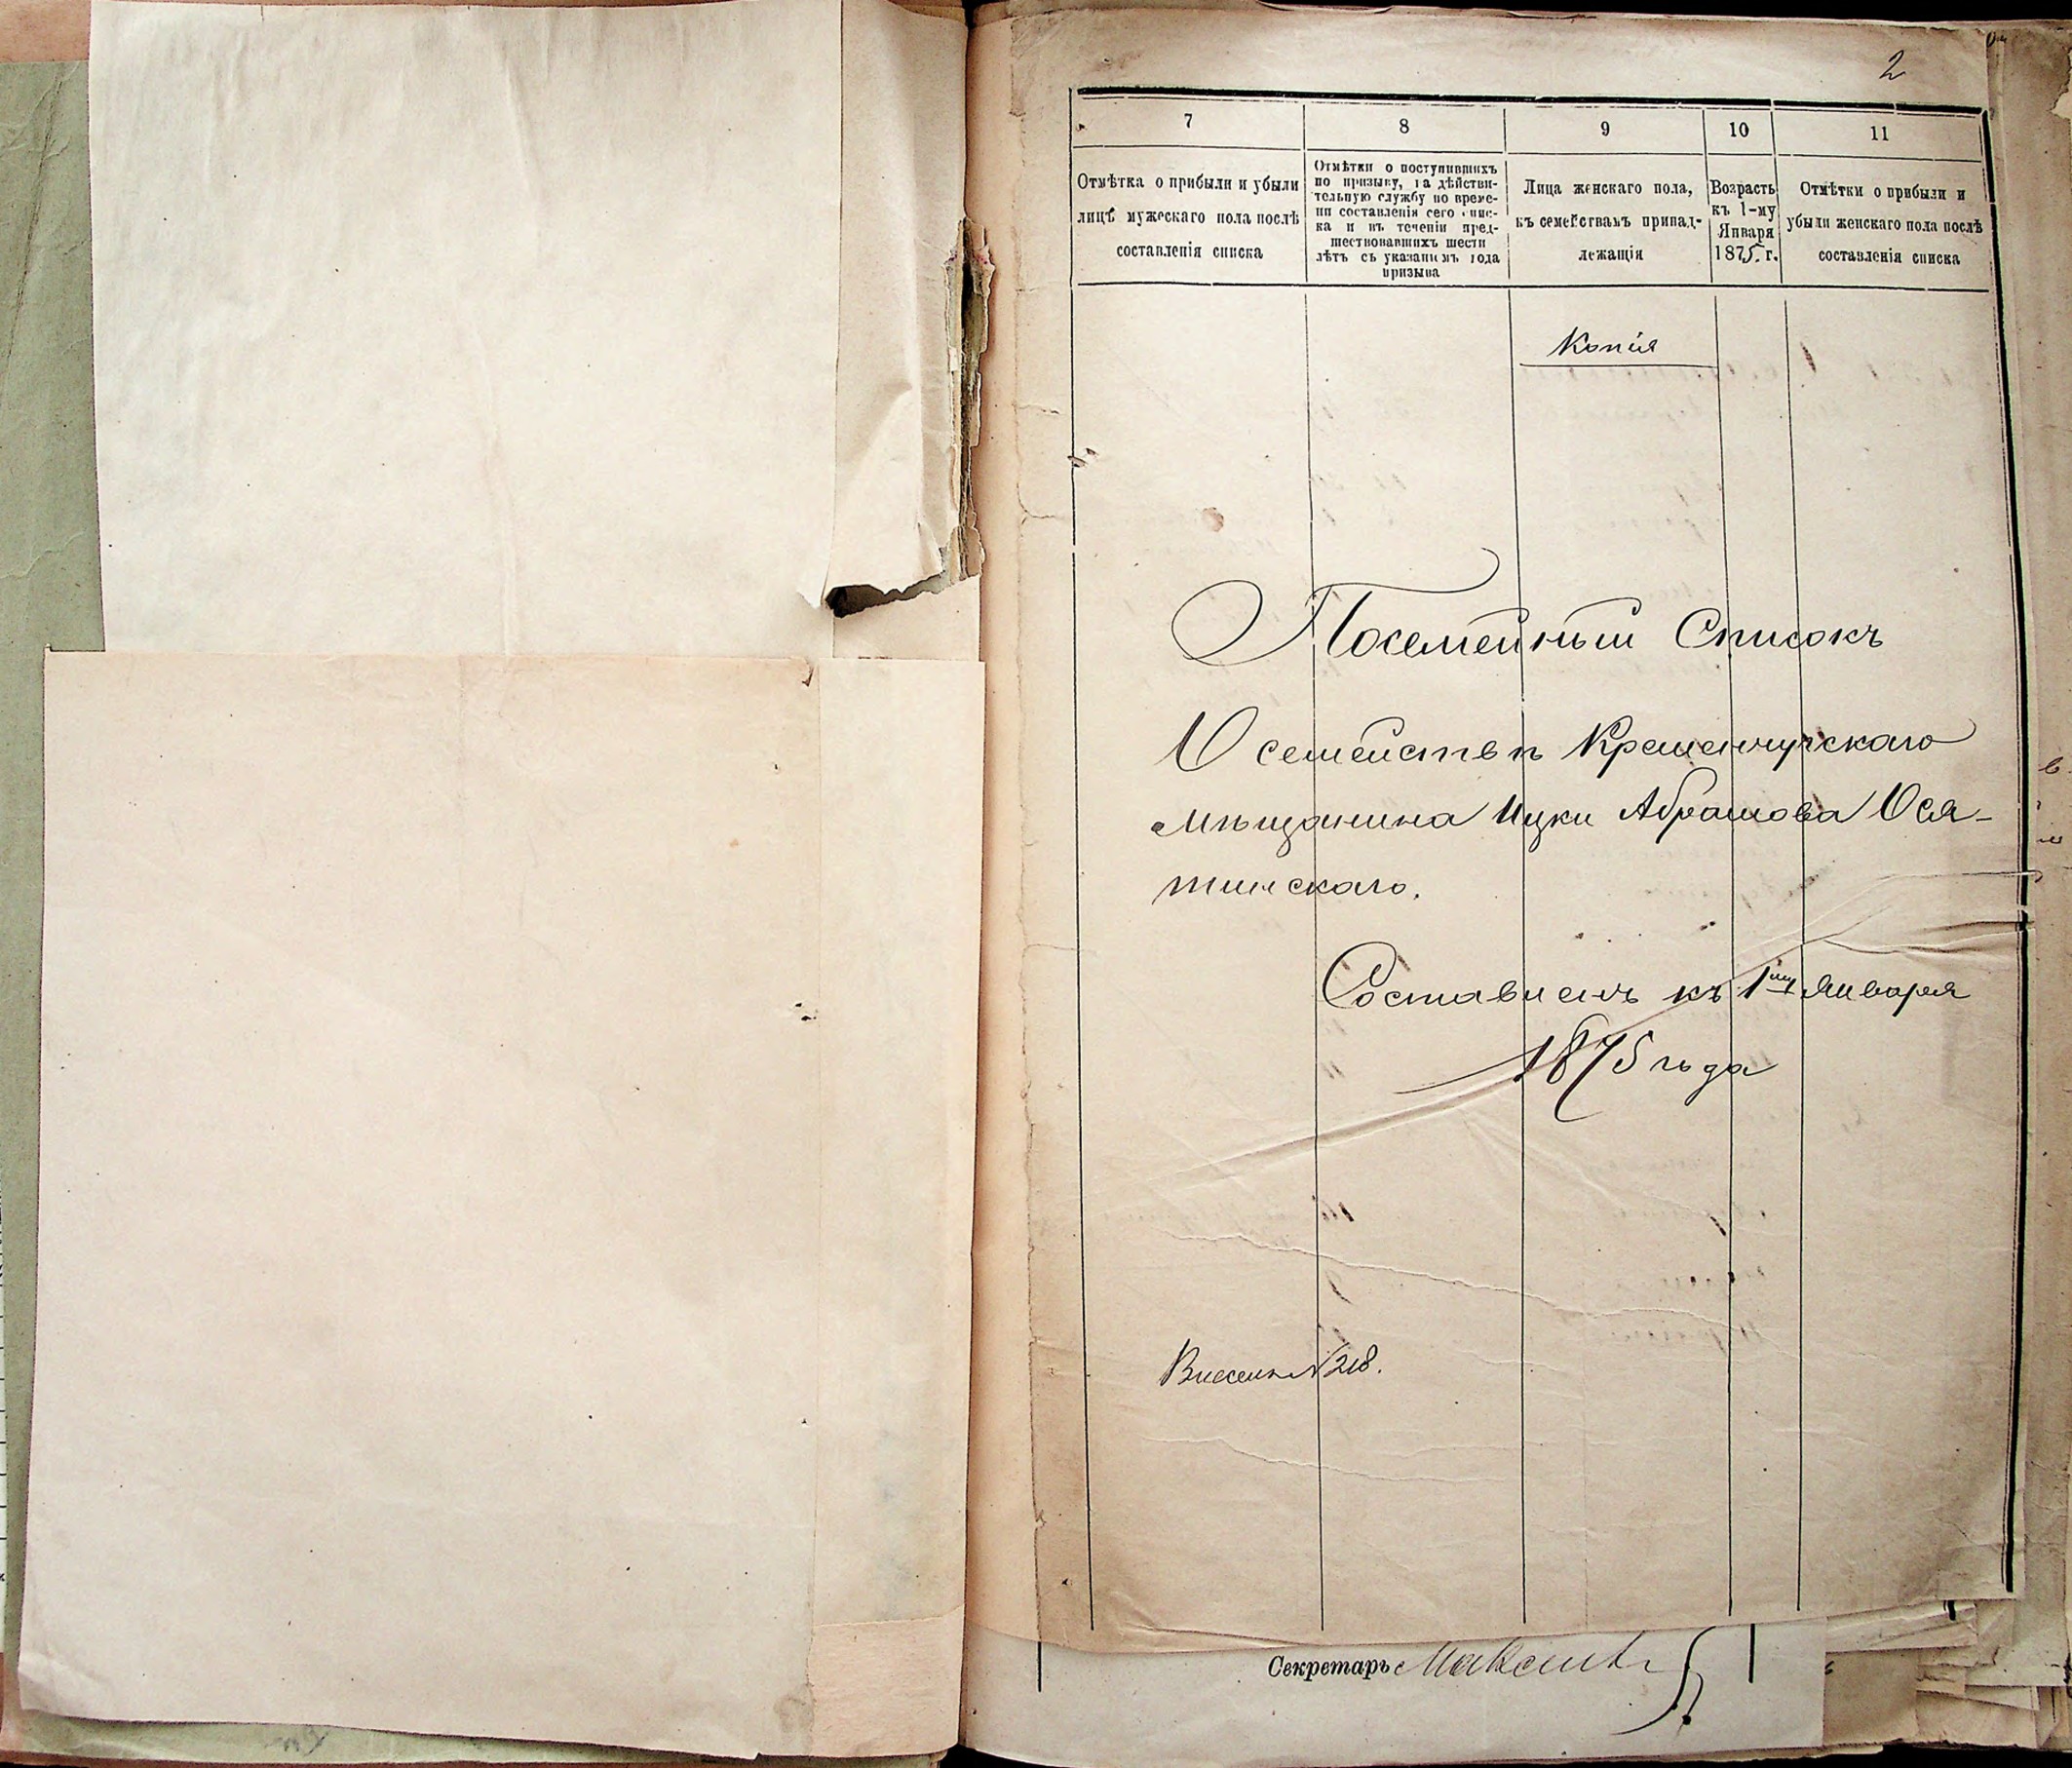 2
7
8
9
10
11
Отмѣтка о прибыли и убыли
лицъ мужескаго пола послѣ
составленія списка
Отмѣтки о поступившихъ
по призыву, на дѣйстви-
тельную службу во време-
ни составленія сего спис-
ка и въ теченіи пред-
шествовавшихъ шести
лѣтъ съ указаніемъ года
призыва
Лица женскаго пола,
къ семействамъ принад-
лежащія
Возрастъ
къ 1-му
Января
1875. г.
Отмѣтки о прибыли и
убыли женскаго пола послѣ
составленія списка
Копія
Посемейный Списокъ
О семействѣ Кременчугскаго
мѣщанина Ицки Абрамова Ося-
тинскаго.
Составленъ къ 1му Января
1875 года
Внесенъ N 218.
Секретарь